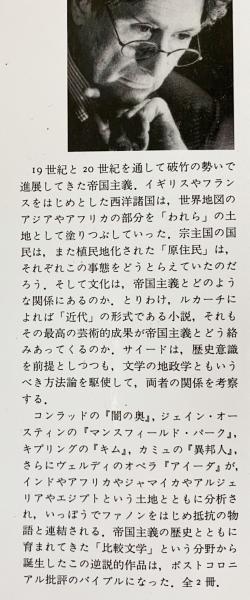 19世紀と20世紀を通して破竹の勢いで
進展してきた帝国主義．イギリスやフラン
スをはじめとした西洋諸国は，世界地図の
アジアやアフリカの部分を「われら」の土
地として塗りつぶしていった．宗主国の国
民は，また植民地化された「原住民」は，
それぞれこの事態をどうとらえていたのだ
ろう．そして文化は，帝国主義とどのよう
な関係にあるのか．とりわけ，ルカーチに
よれば「近代」の形式である小説，それも
その最高の芸術的成果が帝国主義とどう絡
みあってくるのか．サイードは，歴史意識
を前提としつつも，文学の地政学ともいう
べき方法論を駆使して，両者の関係を考察
する．
コンラッドの『闇の奥』，ジェイン・オー
スティンの『マンスフィールド・パーク』，
キプリングの『キム』，カミュの『異邦人』，
さらにヴェルディのオペラ『アイーダ』が，
インドやアフリカやジャマイカやアルジェ
リアやエジプトという土地とともに分析さ
れ，いっぽうでファノンをはじめ抵抗の物
語と連結される．帝国主義の歴史とともに
育まれてきた「比較文学」という分野から
誕生したこの逆説的作品は，ポストコロニ
アル批評のバイブルになった．全2冊．